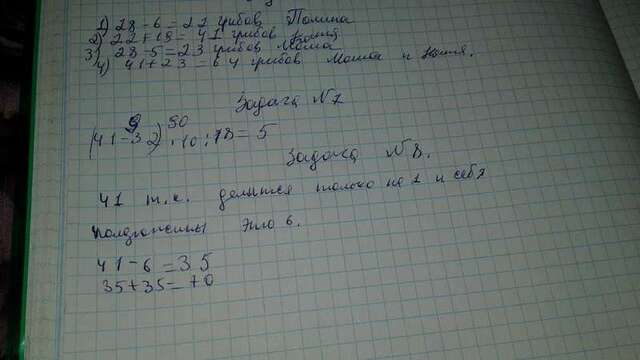 1) 28-6=22 грибов Полина
2) 22+18=41 грибов
3) 28-5=23 грибов Маша
4) 41+23=64 грибов Маша и Катя.
Задача №7
9 90
(41-32)·10:18=5
Задача №8.
41 т.к. делится только на 1 и себя
полдюжины это 6.
41-6=35
35+35=70